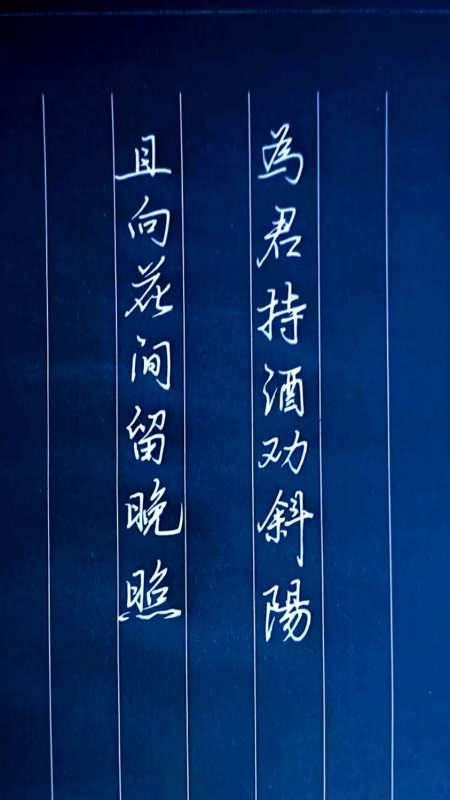 為君持酒劝斜陽
且向花间留晚照